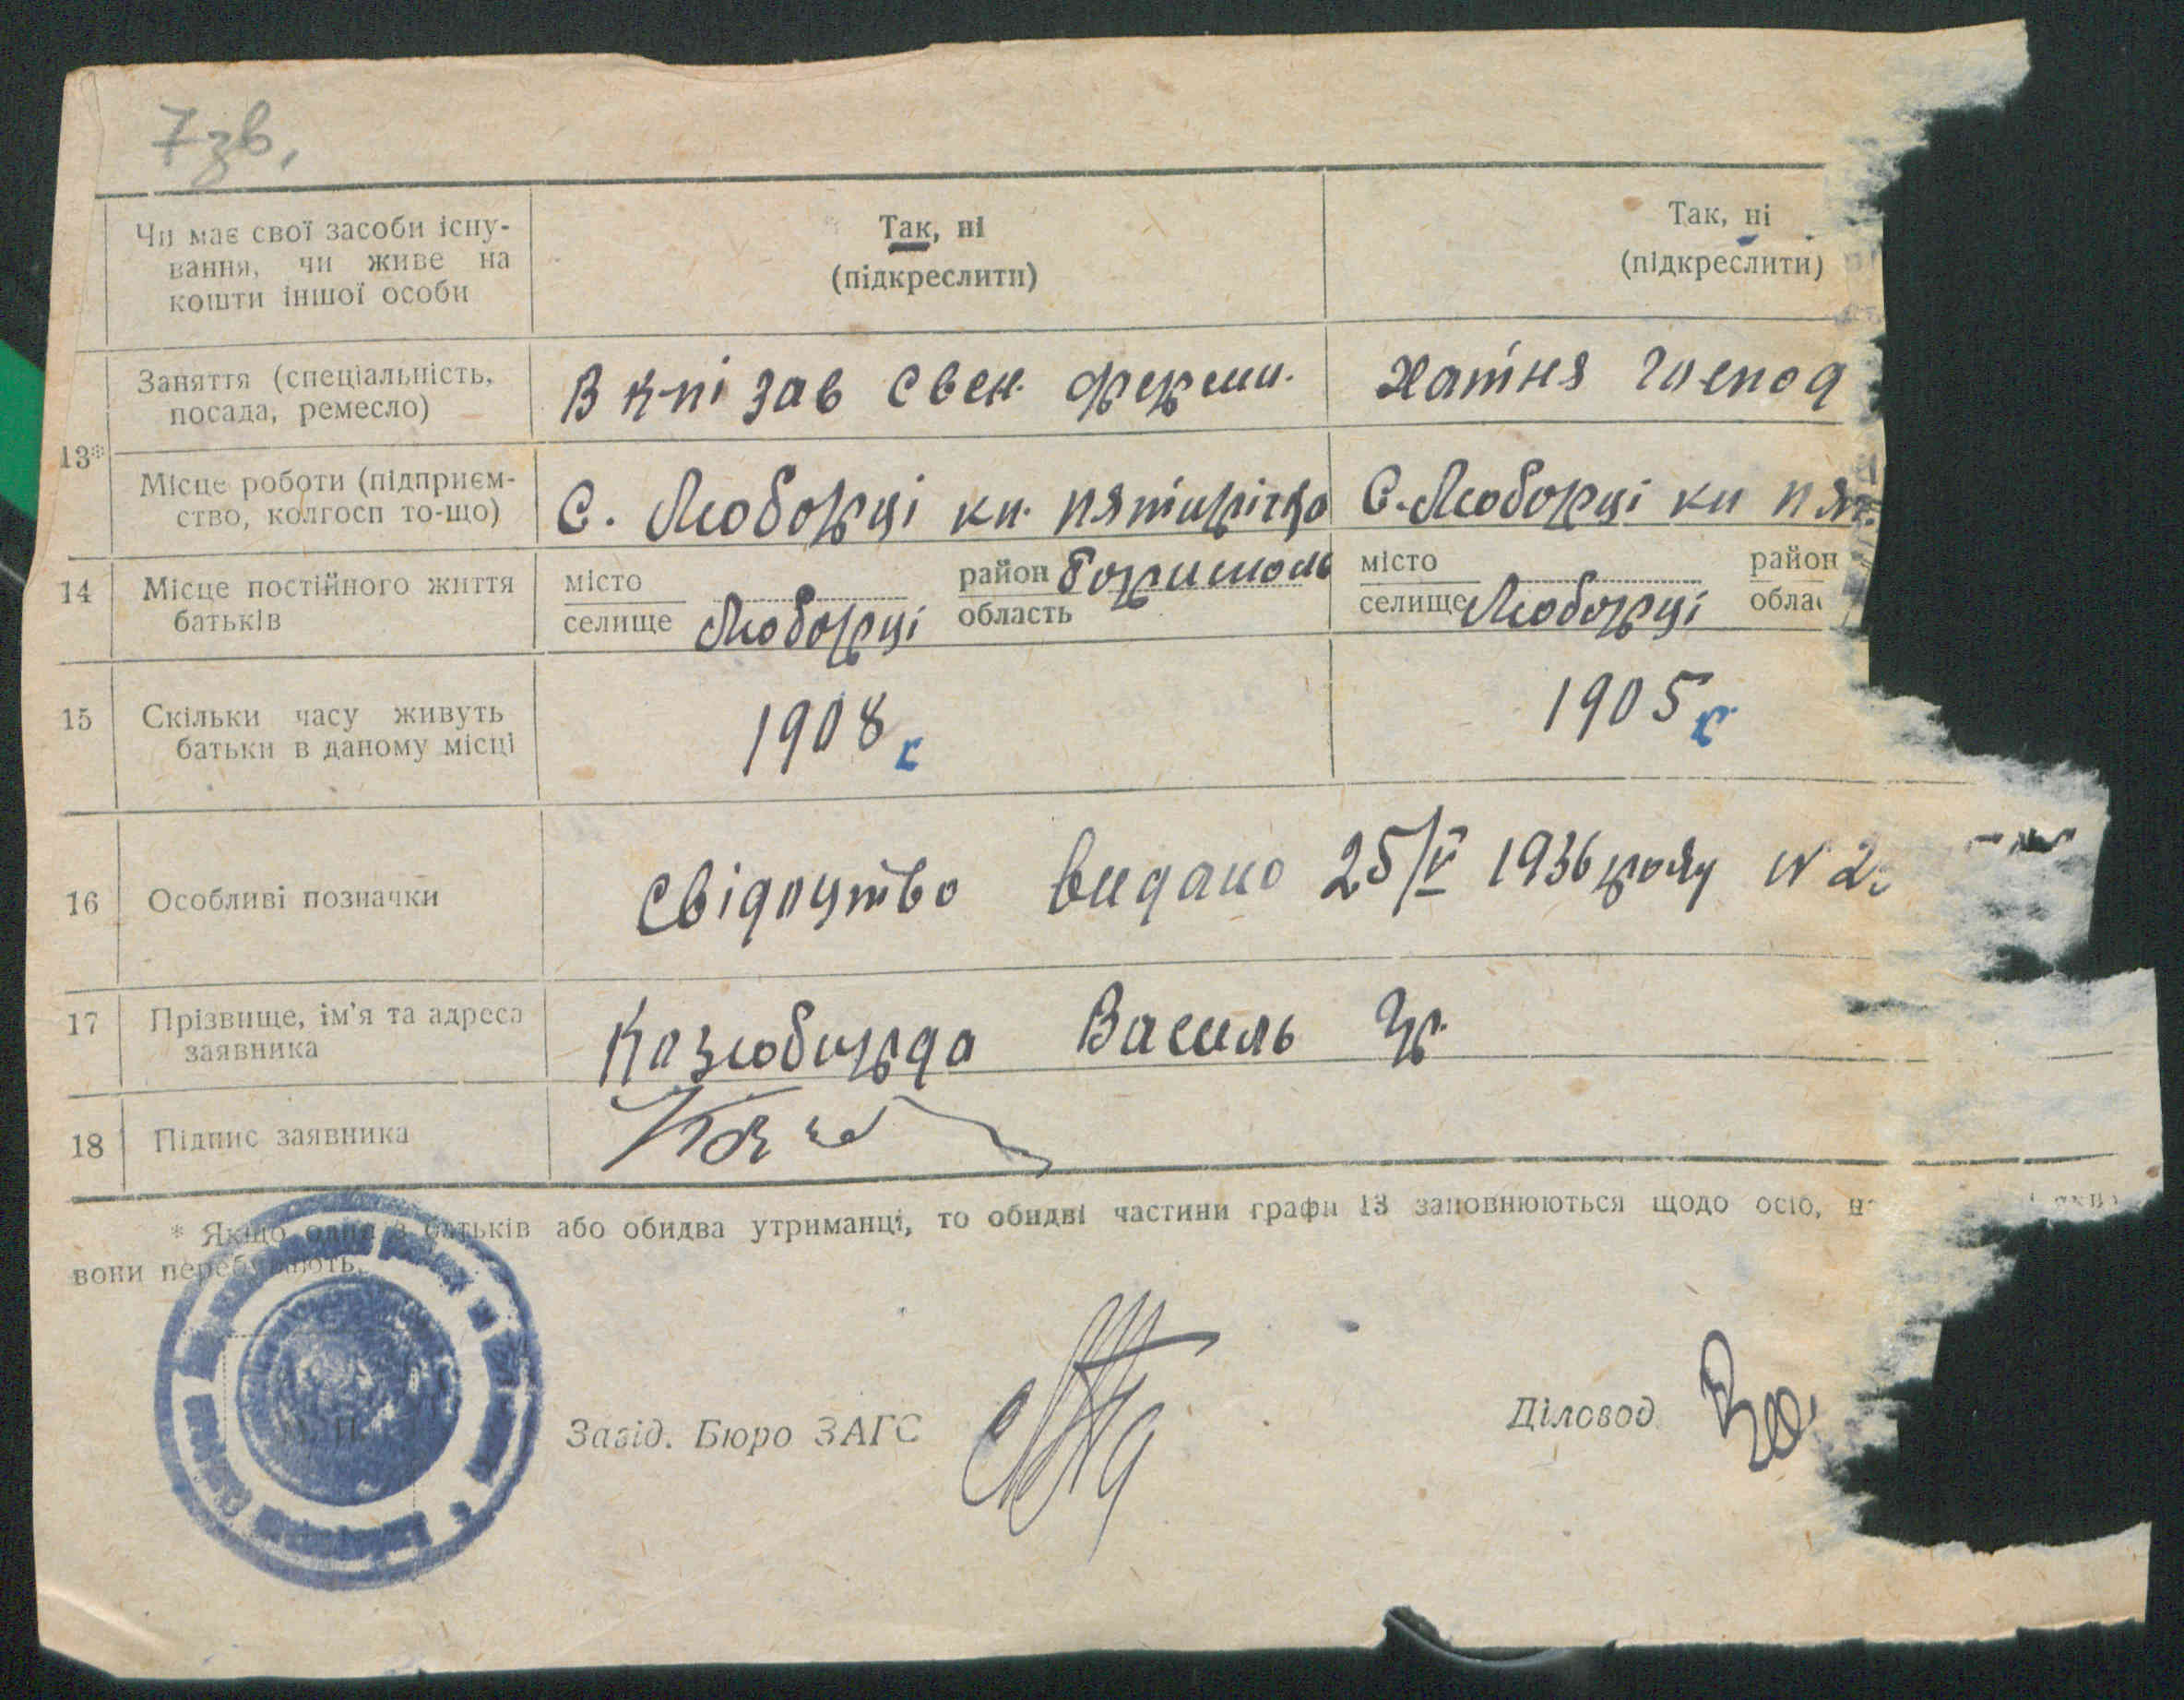 7 зв.
Чи має свої засоби існу-
вання, чи живе на
кошти іншої особи
Так, ні
(підкреслити)
Так, ні
(підкреслити)
13*
Заняття (спеціальність,
посада, ремесло)
В к-пі зав свен. ферми.
Хатня господ
Місце роботи (підприєм-
ство, колгосп то-що)
С. Любарці кп. пятирічка
С. Любарці кп пят
14
Місце постійного життя
батьків
місто
селище Любарці
район Боришполь
область
місто
селище Любарці
район
облас
15
Скільки часу живуть
батьки в даному місці
1908 р
1905 р
16
Особливі позначки
Свідоцтво видано 25/V 1936 року N 2
17
Прізвище, ім'я та адреса
заявника
Козюбирда Василь Гр.
18
Підпис заявника
* Якщо один з батьків або обидва утриманці, то обидві частини графи 13 заповнюються щодо осіб, на
вони перебувають.
М. П.
Завід. Бюро ЗАГС
Діловод